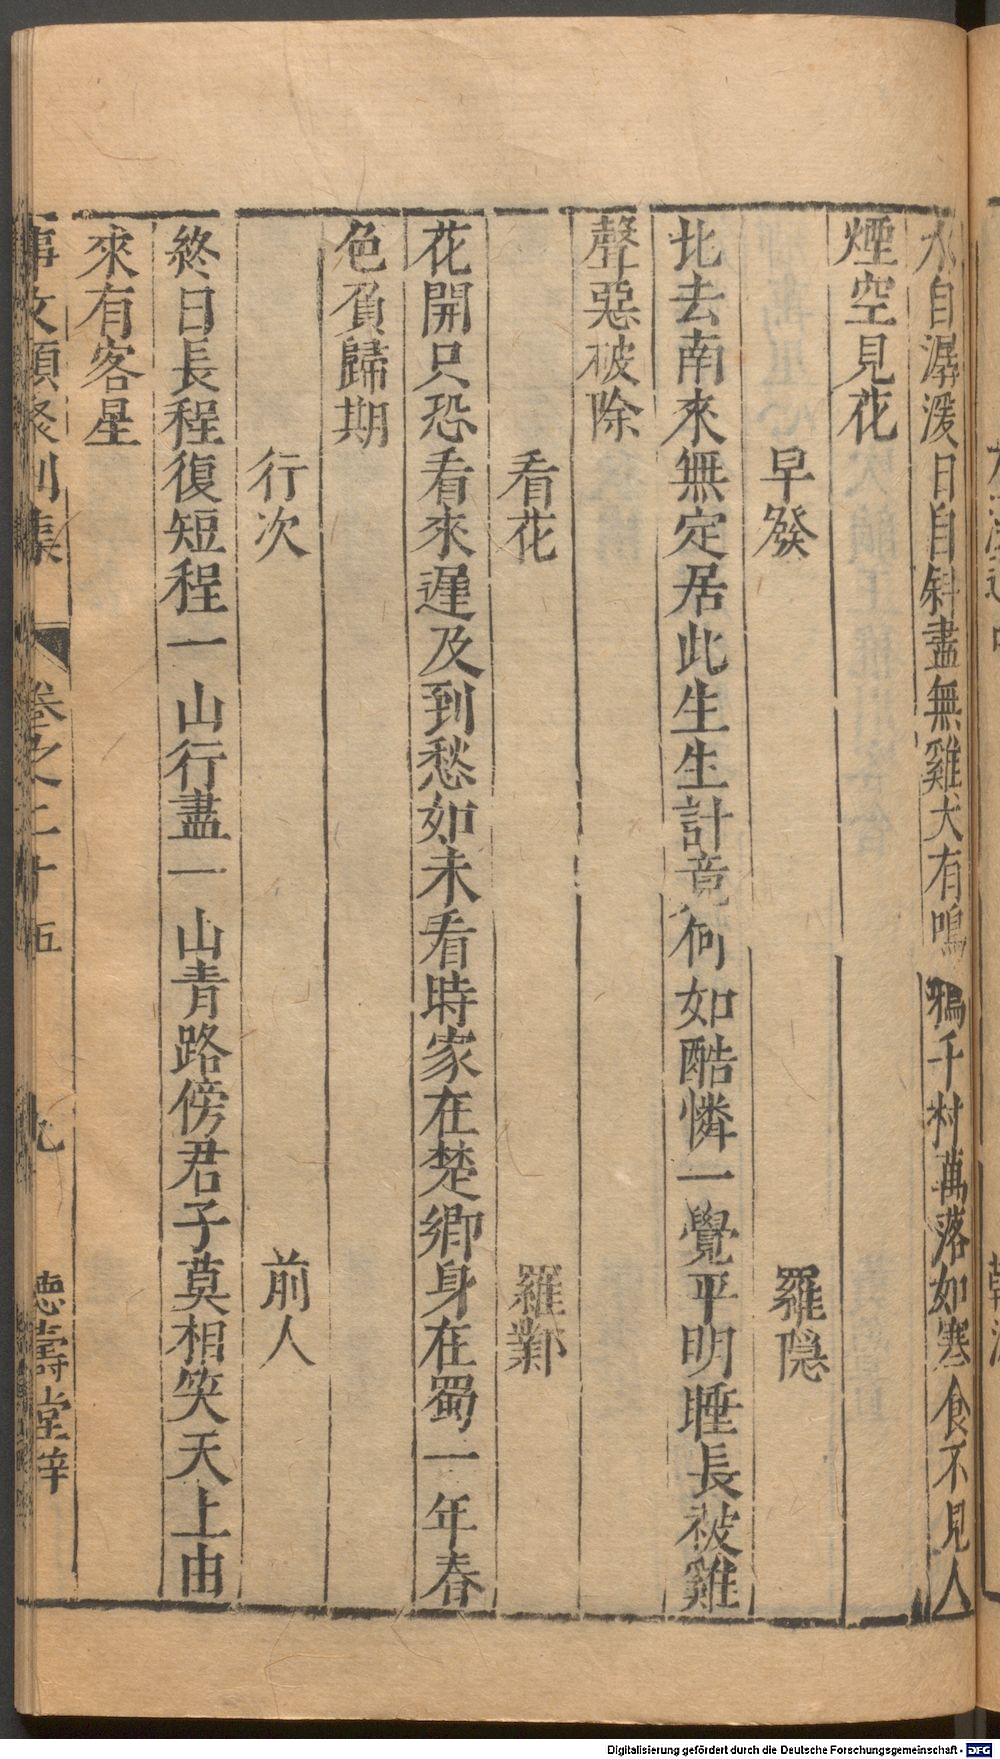 水自潺湲日自斜盡無雞犬有鳴鴉千村萬落如寒食不見人
煙空見花
早發 羅隱
北去南來無定居此生生計竟何如酷憐一覺平明睡長被雞
聲惡破除
看花 羅鄴
花開只恐看來遲及到愁如未看時家在楚鄉身在蜀一年春
色負歸期
行次 前人
終日長程復短程一山行盡一山青路傍君子莫相笑天上由
來有客星
事文類聚別集 卷之二十五 九 德壽堂梓
Digitalisierung gefördert durch die Deutsche Forschungsgemeinschaft - DFG